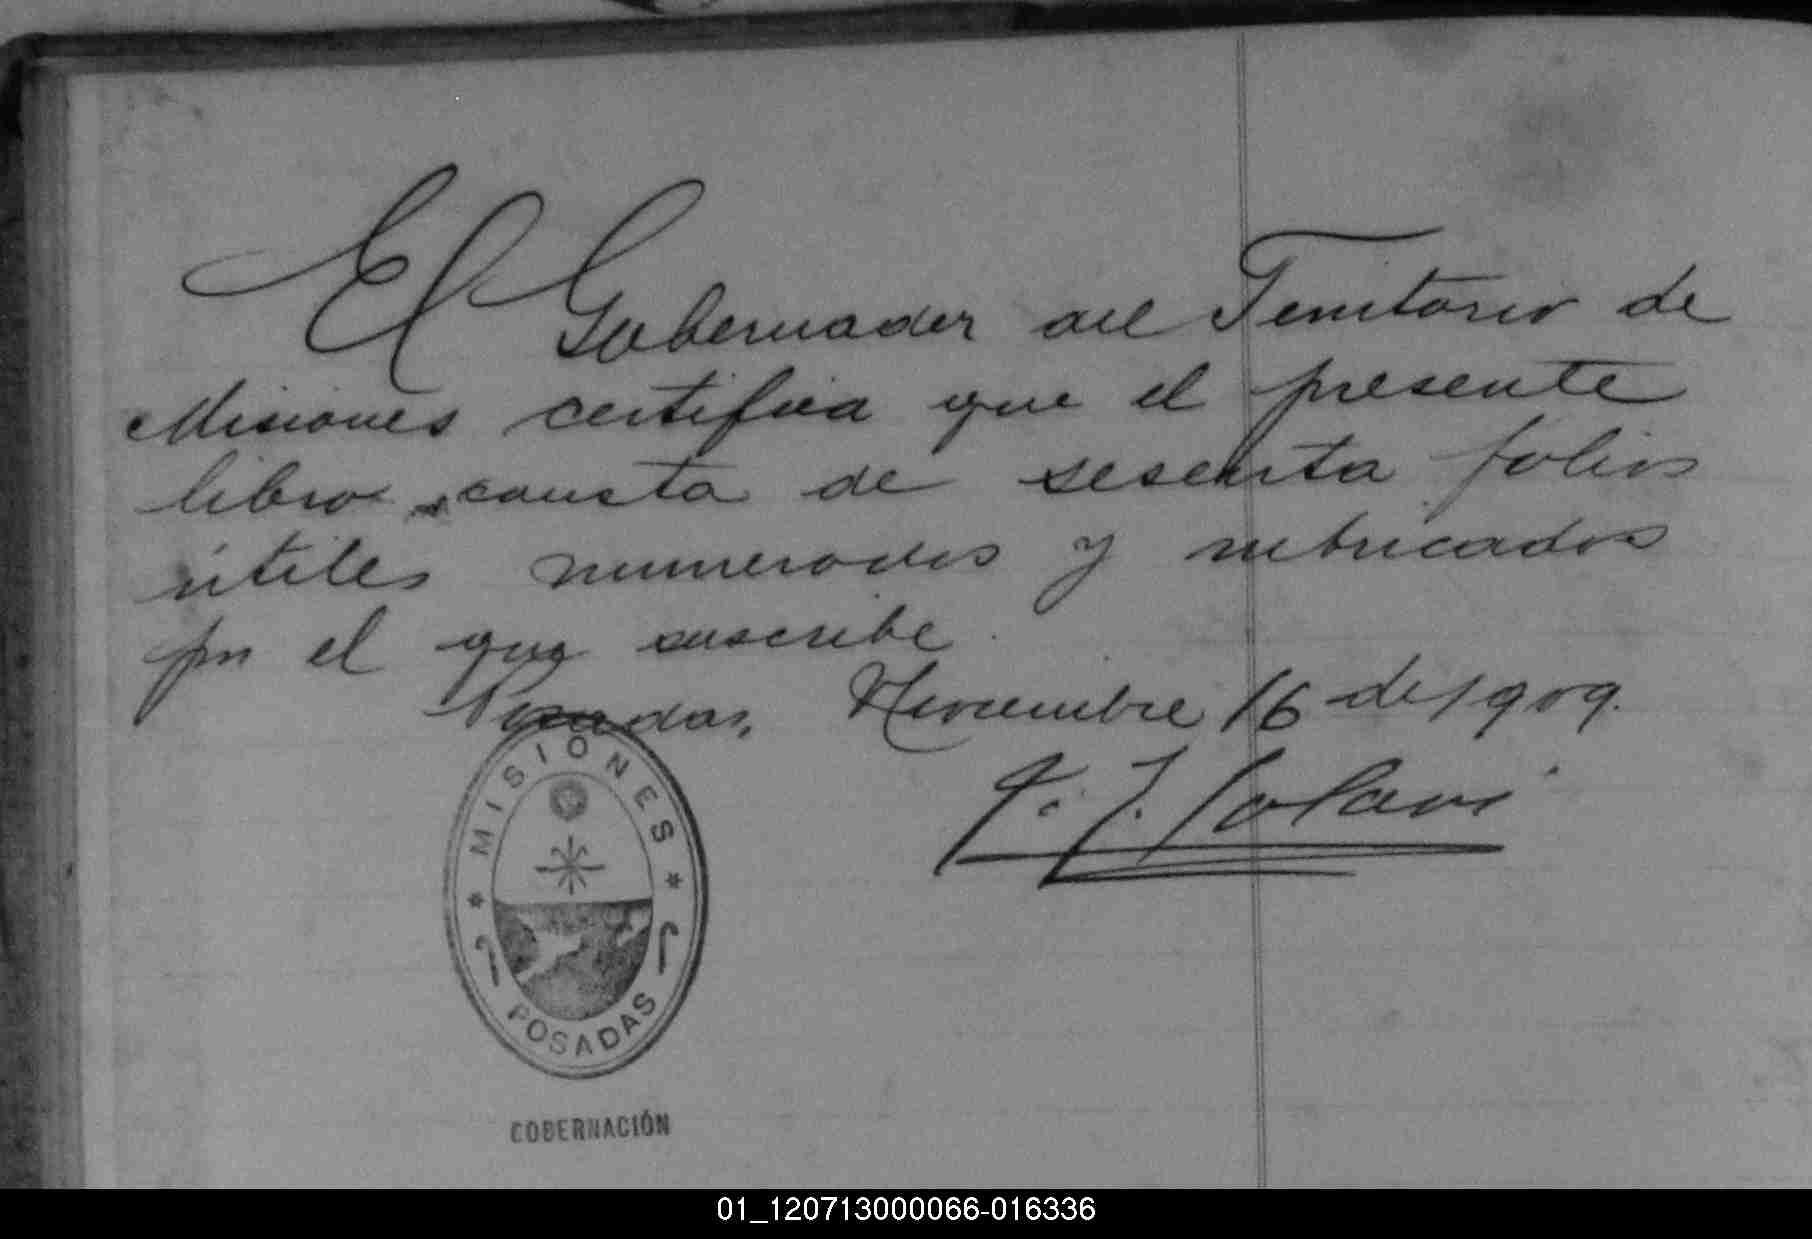 El Gobernador del Territorio de
Misiones certifica que el presente
libro consta de sesenta folios
útiles numerados y rubricados
por el que suscribe.
Posadas, Noviembre 16 de 1909.
J. J. Lanusse
MISIONES
POSADAS
GOBERNACIÓN
01_120713000066-016336